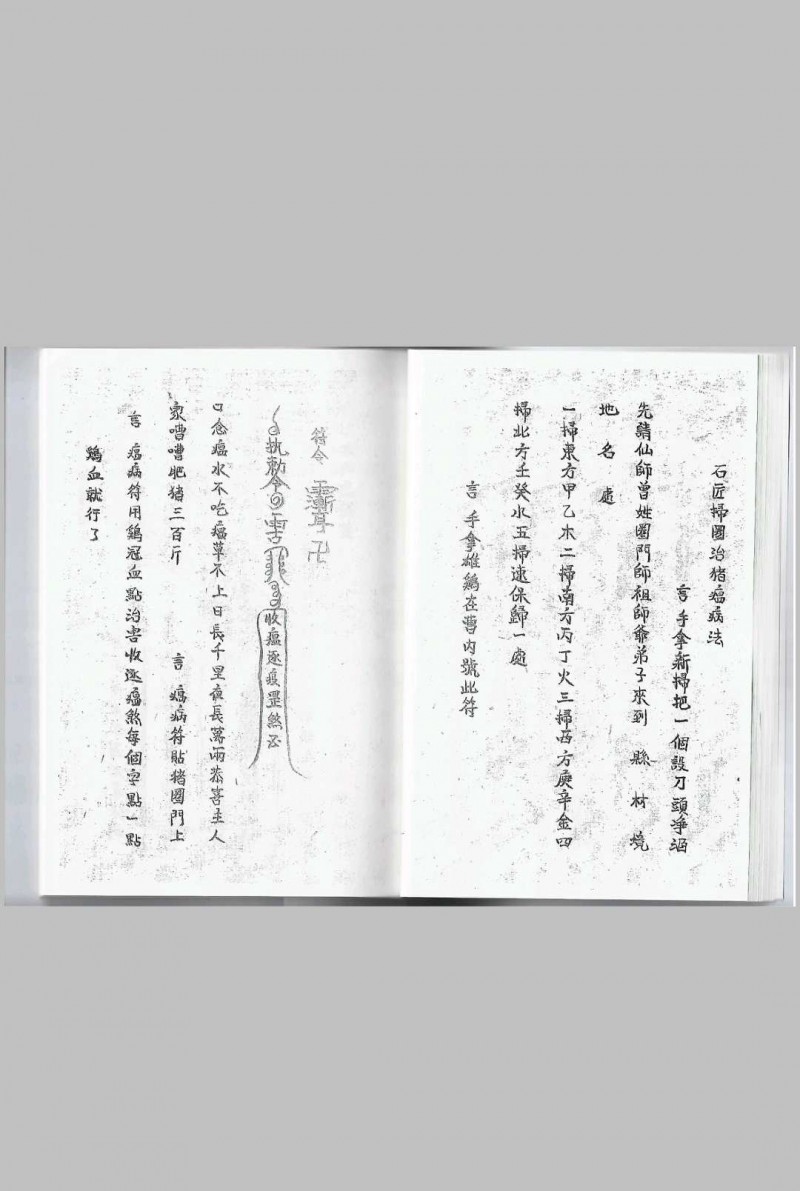 石匠掃圈治猪瘟病法
言手拿新掃把一個設刀頭淨酒
先請仙師曾姓圈門師祖師爺弟子來到 縣 村 境
地名 處
一掃東方甲乙木二掃南方丙丁火三掃西方庚辛金四
掃北方壬癸水五掃速保歸一處
言 手拿雄鷄在曹内號此符
符令 卍
执勅令
收瘟逐疫罡煞
口念瘟水不吃瘟草不上日長千里夜長萬兩恭喜主人
家嘈嘈肥猪三百斤 言 瘟病符貼猪圈門上
言 瘟病符用鷄冠血點治害收逐瘟煞每個字點一點
鷄血就行了